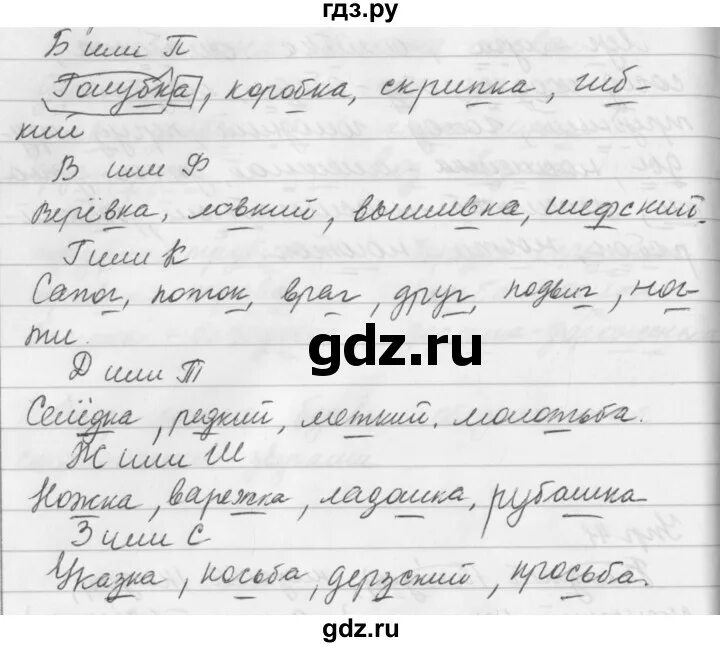 гдз.ру
Б или П
Голубка, коробка, скрипка, гиб-
кий
В или Ф
Верёвка, ловкий, вышивка, шефский.
Г или К
Сапог, поток, враг, друг, подвиг, ног-
ти.
gdz.ru
Д или Т
Селёдка, редкий, меткий, молотьба.
Ж или Ш
Ножка, варежка, ладошка, рубашка
З или С
Указка, косьба, дерзский, просьба.
gdz.ru